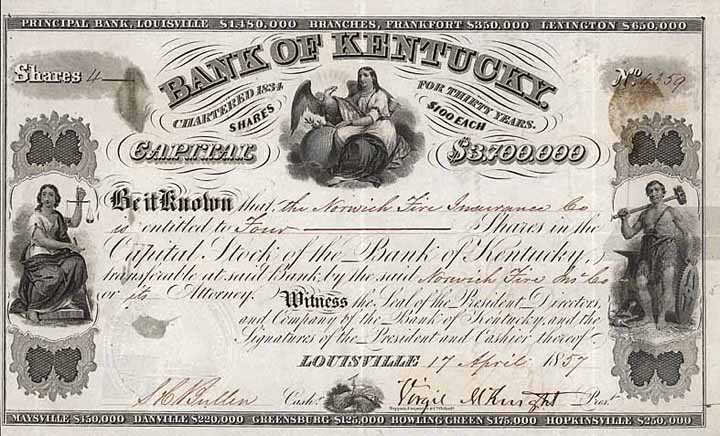 PRINCIPAL BANK, LOUISVILLE $1,480,000 BRANCHES, FRANKFORT $350,000 LEXINGTON $650,000
BANK OF KENTUCKY.
Shares 4
No.
CHARTERED 1834 FOR THIRTY YEARS.
SHARES $100 EACH
CAPITAL $3,700,000
Be it Known that, the Norwich Fire Insurance Co
is entitled to Four Shares in the
Capital Stock of the Bank of Kentucky,
transferable at said Bank, by the said Norwich Fire Ins Co
or its Attorney. Witness the Seal of the President Directors,
and Company of the Bank of Kentucky, and the
Signatures of the President and Cashier thereof.
LOUISVILLE 17 April 1857
Cash. Virgil McKnight Prest.
MAYSVILLE $450,000 DANVILLE $220,000 GREENSBURG $125,000 BOWLING GREEN $175,000 HOPKINSVILLE $250,000